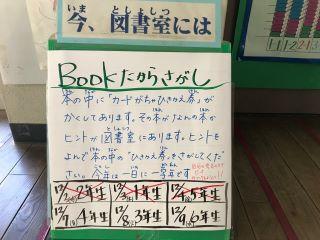 いま、としょしつ
今、図書室には
Bookたからさがし
本の中に"カードがちゃひきかえ券"が
かくしてあります。その本がなんの本か
ヒントが図書室にあります。ヒントを
よんで本の中の"ひきかえ券をさがしてくだ
さい。今年は一日に一学年です
12/2 2年生
12/3 1年生
12/ 5年生
12/7 4年生
12/8 3年生
12/9 6年生
1-1
1-2